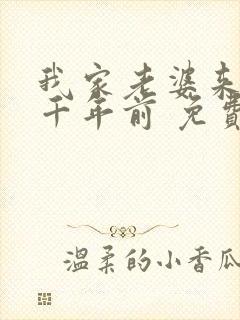 我家老婆来
千年前 免費
温柔的小香瓜